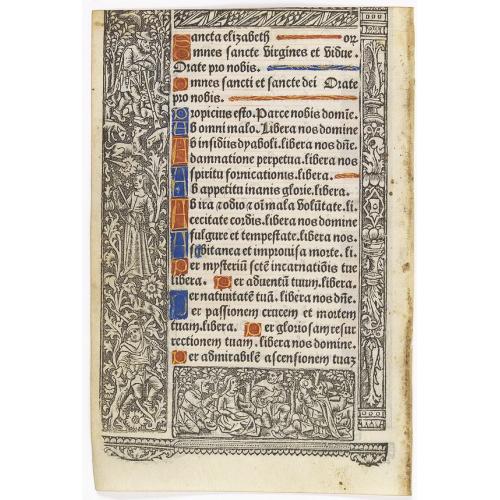 Sancta elizabeth or
Omnes sancte virgines et vidue.
Orate pro nobis.
Omnes sancti et sancte dei Orate
pro nobis.
Propicius esto. Parce nobis domīe.
Ab omni malo. Libera nos domine
Ab insidiis dyaboli. libera nos dñe.
A damnatione perpetua. libera nos
A spiritu fornicationis. libera.
Ab appetitu inanis glorie. libera.
Ab ira ⁊ odio ⁊ oī mala volūtate. li.
A cecitate cordis. libera nos domine
A fulgure et tempestate. libera nos.
A subitanea et improvisa morte. li.
Per mysteriū sctē incarnatiōis tue
libera. Per adventū tuum. libera.
Per nativitatē tuā. libera nos dñe.
Per passionem crucem et mortem
tuam. libera. Per gloriosam resur
rectionem tuam. libera nos domine.
Per admirabilē ascensionem tuaʒ